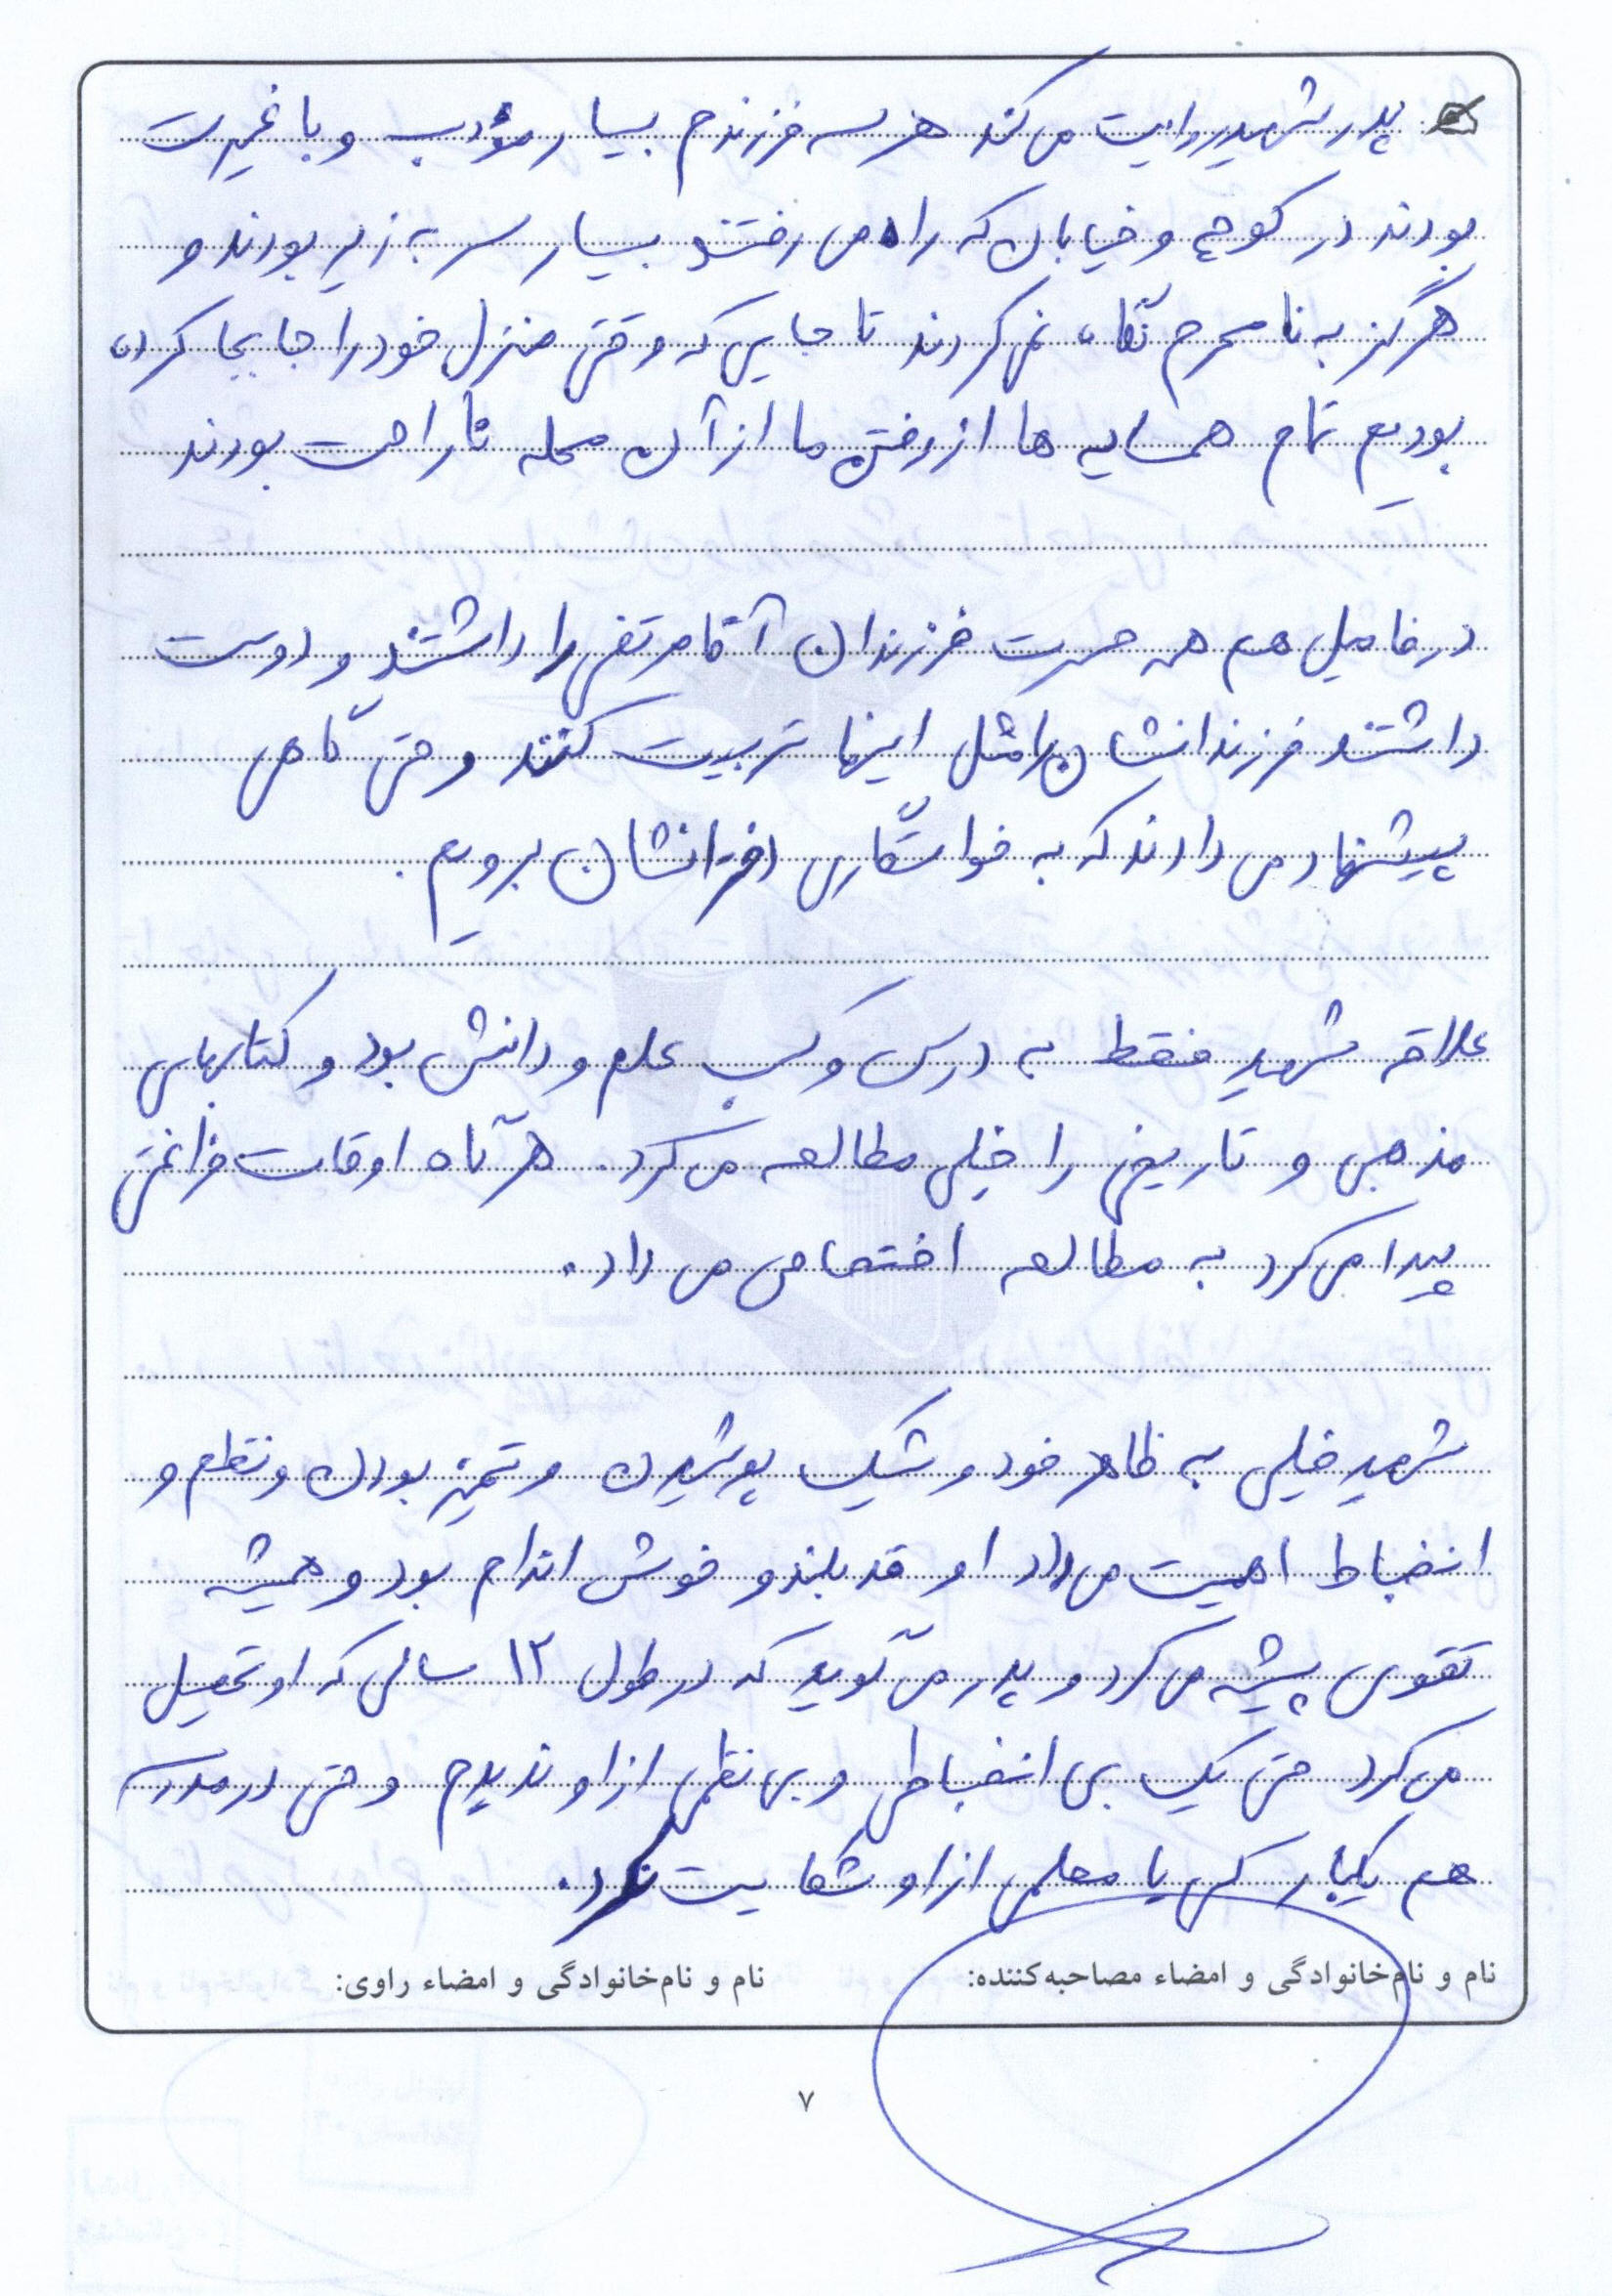 پدر شهید روایت می کند هر سه فرزندم بسیار مؤدب و با غیرت
بودند در کوچه و خیابان که راه می رفتند بسیار سر به زیر بودند و
هرگز به نامحرم نگاه نمی کردند تا جایی که وقتی منزل خود را جابجا کرده
بودیم تمام همسایه ها از رفتن ما از آن محله ناراحت بودند
در فامیل هم همه حسرت فرزندان آقا مرتضی را داشتند و دوست
داشتند فرزندانشان را مثل اینها تربیت کنند و حتی گاهی
پیشنهاد می دادند که به خواستگاری دخترانشان برویم.
علاقه شهید فقط به درس و کسب علم و دانش بود و کتابهای
مذهبی و تاریخی را خیلی مطالعه می کرد. هرگاه اوقات فراغتی
پیدا می کرد به مطالعه اختصاص می داد.
شهید خیلی به ظاهر خود و شیک پوشیدن و تمیز بودن و نظم و
انضباط اهمیت می داد او قد بلند و خوش اندام بود و همیشه
تقوی پیشه می کرد و پدر می گوید که در طول ۱۲ سالی که او تحصیل
می کرد حتی یک بی انضباطی و بی نظمی از او ندیدم و حتی در مدرسه
هم یکبار کسی یا معلمی از او شکایت نکرد.
نام و نام‌خانوادگی و امضاء مصاحبه‌کننده: نام و نام‌خانوادگی و امضاء راوی:
۷